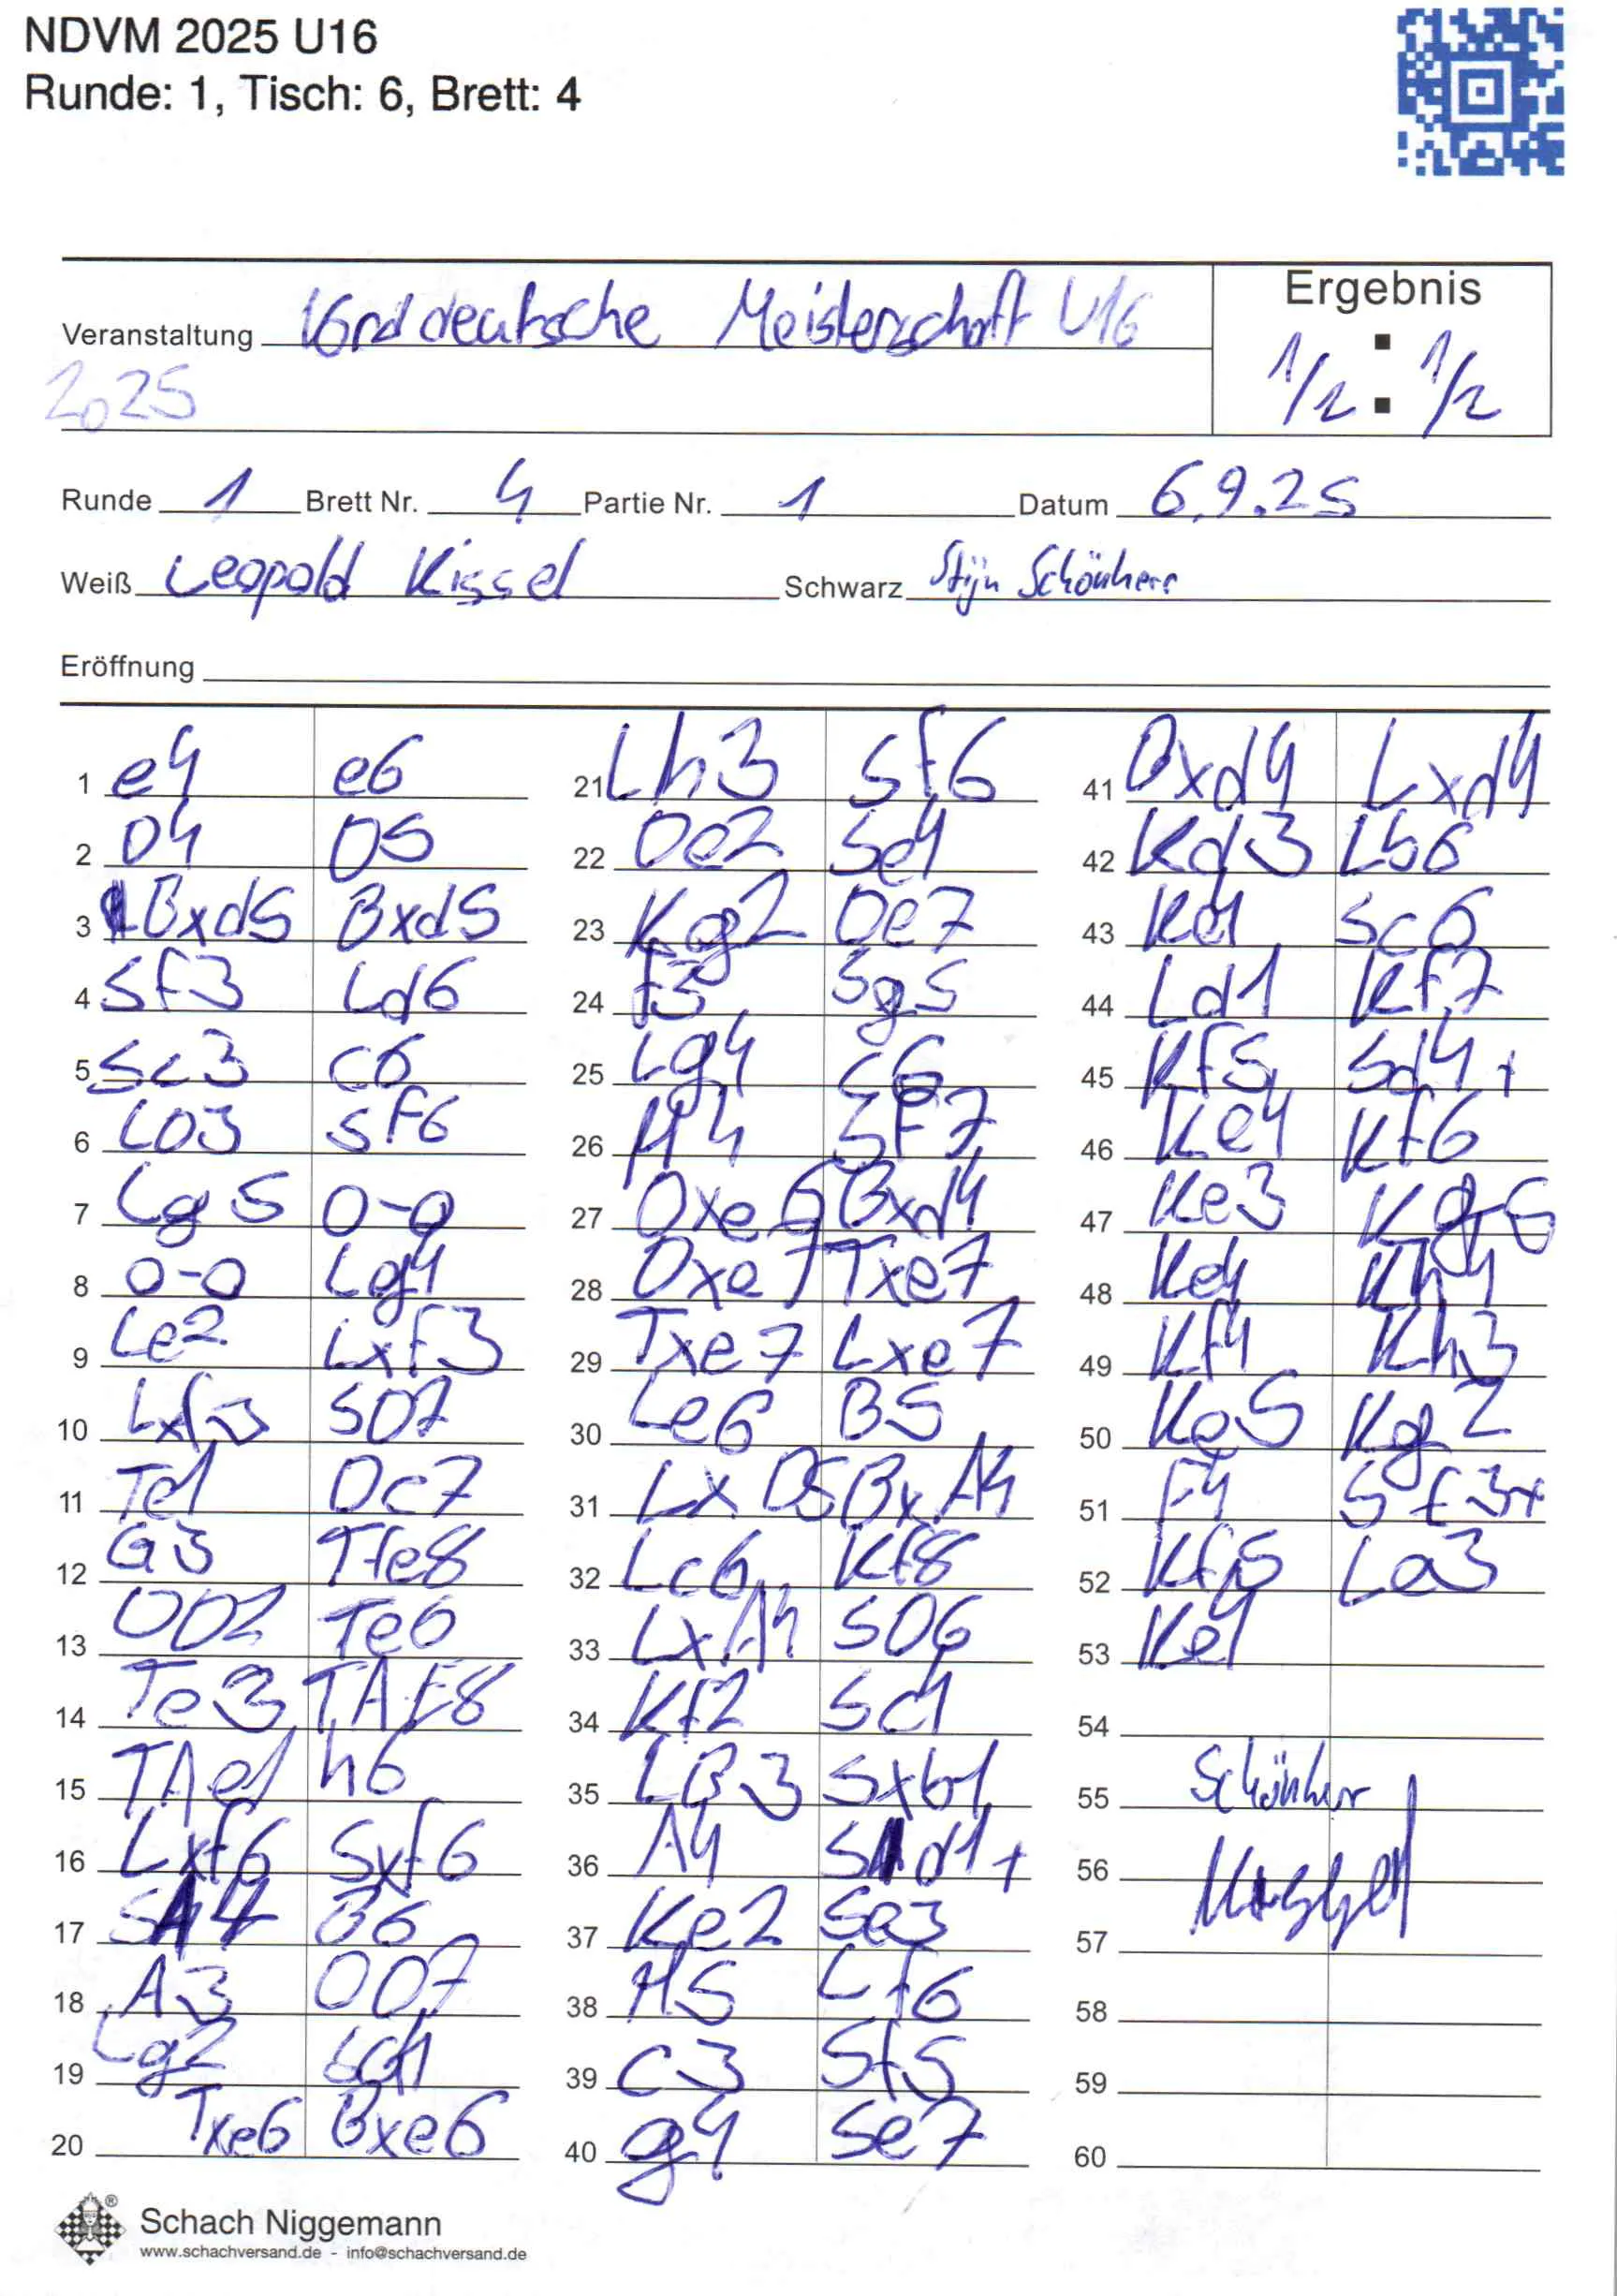 NDVM 2025 U16
Runde: 1, Tisch: 6, Brett: 4
Veranstaltung Norddeutsche Meisterschaft U16
2025
Ergebnis
1/2 : 1/2
Runde 1 Brett Nr. 4 Partie Nr. 1 Datum 6.9.25
Weiß Leopold Kissel Schwarz Stijn Schönherr
Eröffnung
1 e4 e6
2 D4 D5
3 Bxd5 Bxd5
4 Sf3 Ld6
5 Sc3 c6
6 LD3 Sf6
7 Lg5 0-0
8 0-0 Lg4
9 Le2 Lxf3
10 Lxf3 SD7
11 Te1 Dc7
12 G3 Tfe8
13 DD2 Te6
14 Te3 TAE8
15 TAe1 h6
16 Lxf6 Sxf6
17 B6
18 A3 DD7
19 Lg2
20 Txe6 Bxe6
21 Lh3 Sf6
22 De2 Se4
23 Kg2 De7
24 f3 Sg5
25 Lg4
26 H4 SF7
27 Dxe6 Bxd4
28 Dxe7 Txe7
29 Txe7 Lxe7
30 Le6 B5
31 LxD5 BxA4
32 Lc6 Kf8
33 LxA4 SD6
34 Kf2 Sc4
35 LB3 Sxb2
36 A4 Sd1+
37 Ke2
38 H5 Lf6
39 c3 Sf5
40 g4 Se7
41 Bxd4 Lxd4
42 Kd3 Lb6
43 Ke4 Sc6
44 Ld1 Kf7
45 Kf5 Sd4+
46 Ke4 Kf6
47 Ke3 Kg5
48 Ke4 Kh4
49 Kf4 Kh3
50 Ke5 Kg2
51 F4 Sf3+
52 Kf5 La3
53 Ke4
54
55 Schönherr
56 Kissel
57
58
59
60
Schach Niggemann
www.schachversand.de - info@schachversand.de